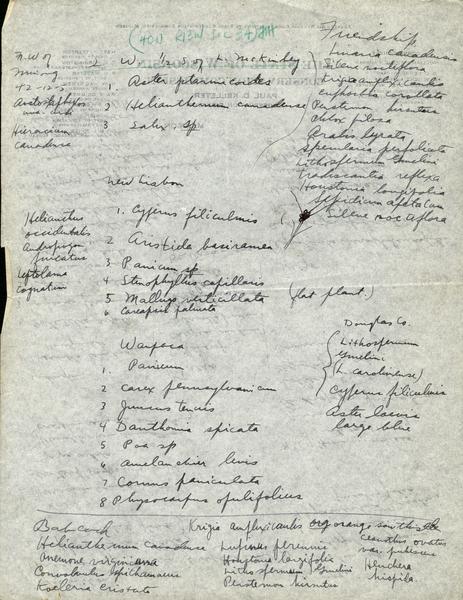 (40N R13W Sec 34)
2 W 1/2 S of
1. Aster ptarmicoides
2 Helianthemum canadense
3 Salix sp
N.W of
Minong
+2-12-3
Arctostaphylos
uva-ursi
Hieracium
canadense
Friendship
Linaria canadensis
Silene
Krigia amplexicaulis
euphorbia corollata
Penstemon hirsutus
Phlox pilosa
Arabis lyrata
Specularia perfoliata
Lithospermum Gmelini
Tradescantia reflexa
Houstonia longifolia
Lepidium apetalum
Silene
New Lisbon
1. Cyperus filiculmis
2 Aristida basiramea
3 Panicum sp
4 Stenophyllus capillaris
5 Mollugo verticillata (flat plant.)
6 Coreopsis palmata
Helianthus
occidentalis
Andropogon
furcatus
Leptoloma
cognatum
Waupaca
1 Panicum
2 Carex pennsylvanicum
3 Juncus tenuis
4 Danthonia spicata
5 Poa sp
6 Amelanchier levis
7 Cornus paniculata
8 Physocarpus opulifolius
Douglas Co.
Lithospermum
Gmelini
(L carolinense)
Cyperus filiculmis
Aster
large blue
Babcock
Helianthemum canadense
Anemone virginiana
Convolvulus spithamaeus
Koeleria cristata
Krigia amplexicaulis orange
Lupinus perennis
Houstonia longifolia
Lithospermum Gmelini
Penstemon hirsutus
Ceanothus ovatus
var. pubescens
Heuchera
hispida.